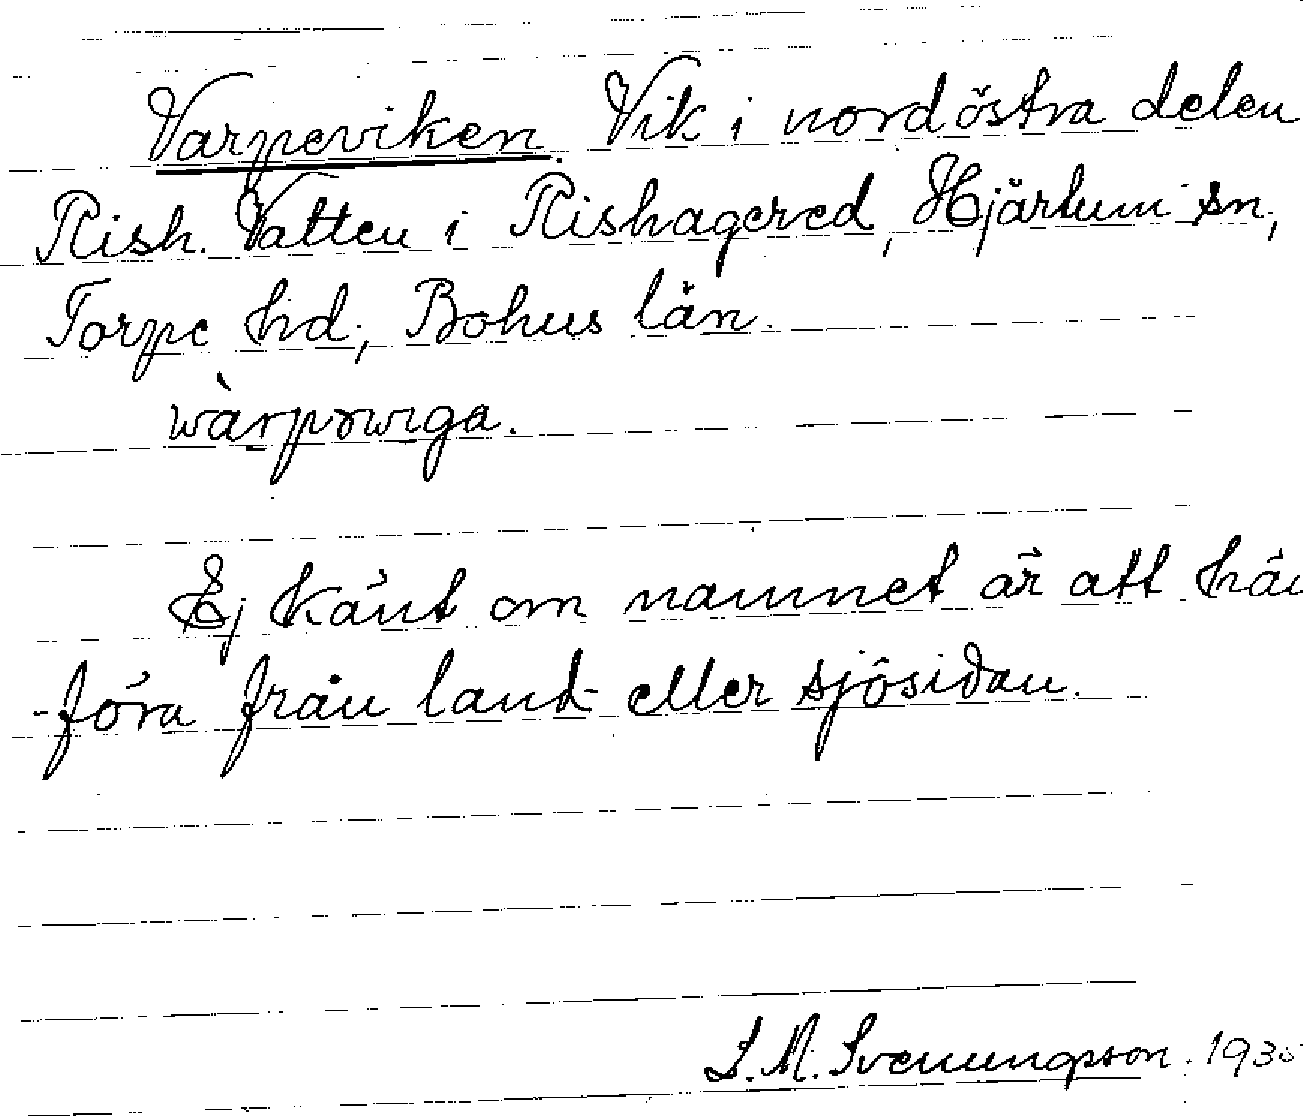 Varpeviken. Vik i nordöstra delen
Rish. Vatten i Rishagered, Hjärtum sn,
Torpe hd, Bohus län.
wàrpəwiga.
Ej känt om namnet är att hän
-föra från land- eller sjösidan.
S. M. Svenungsson. 193